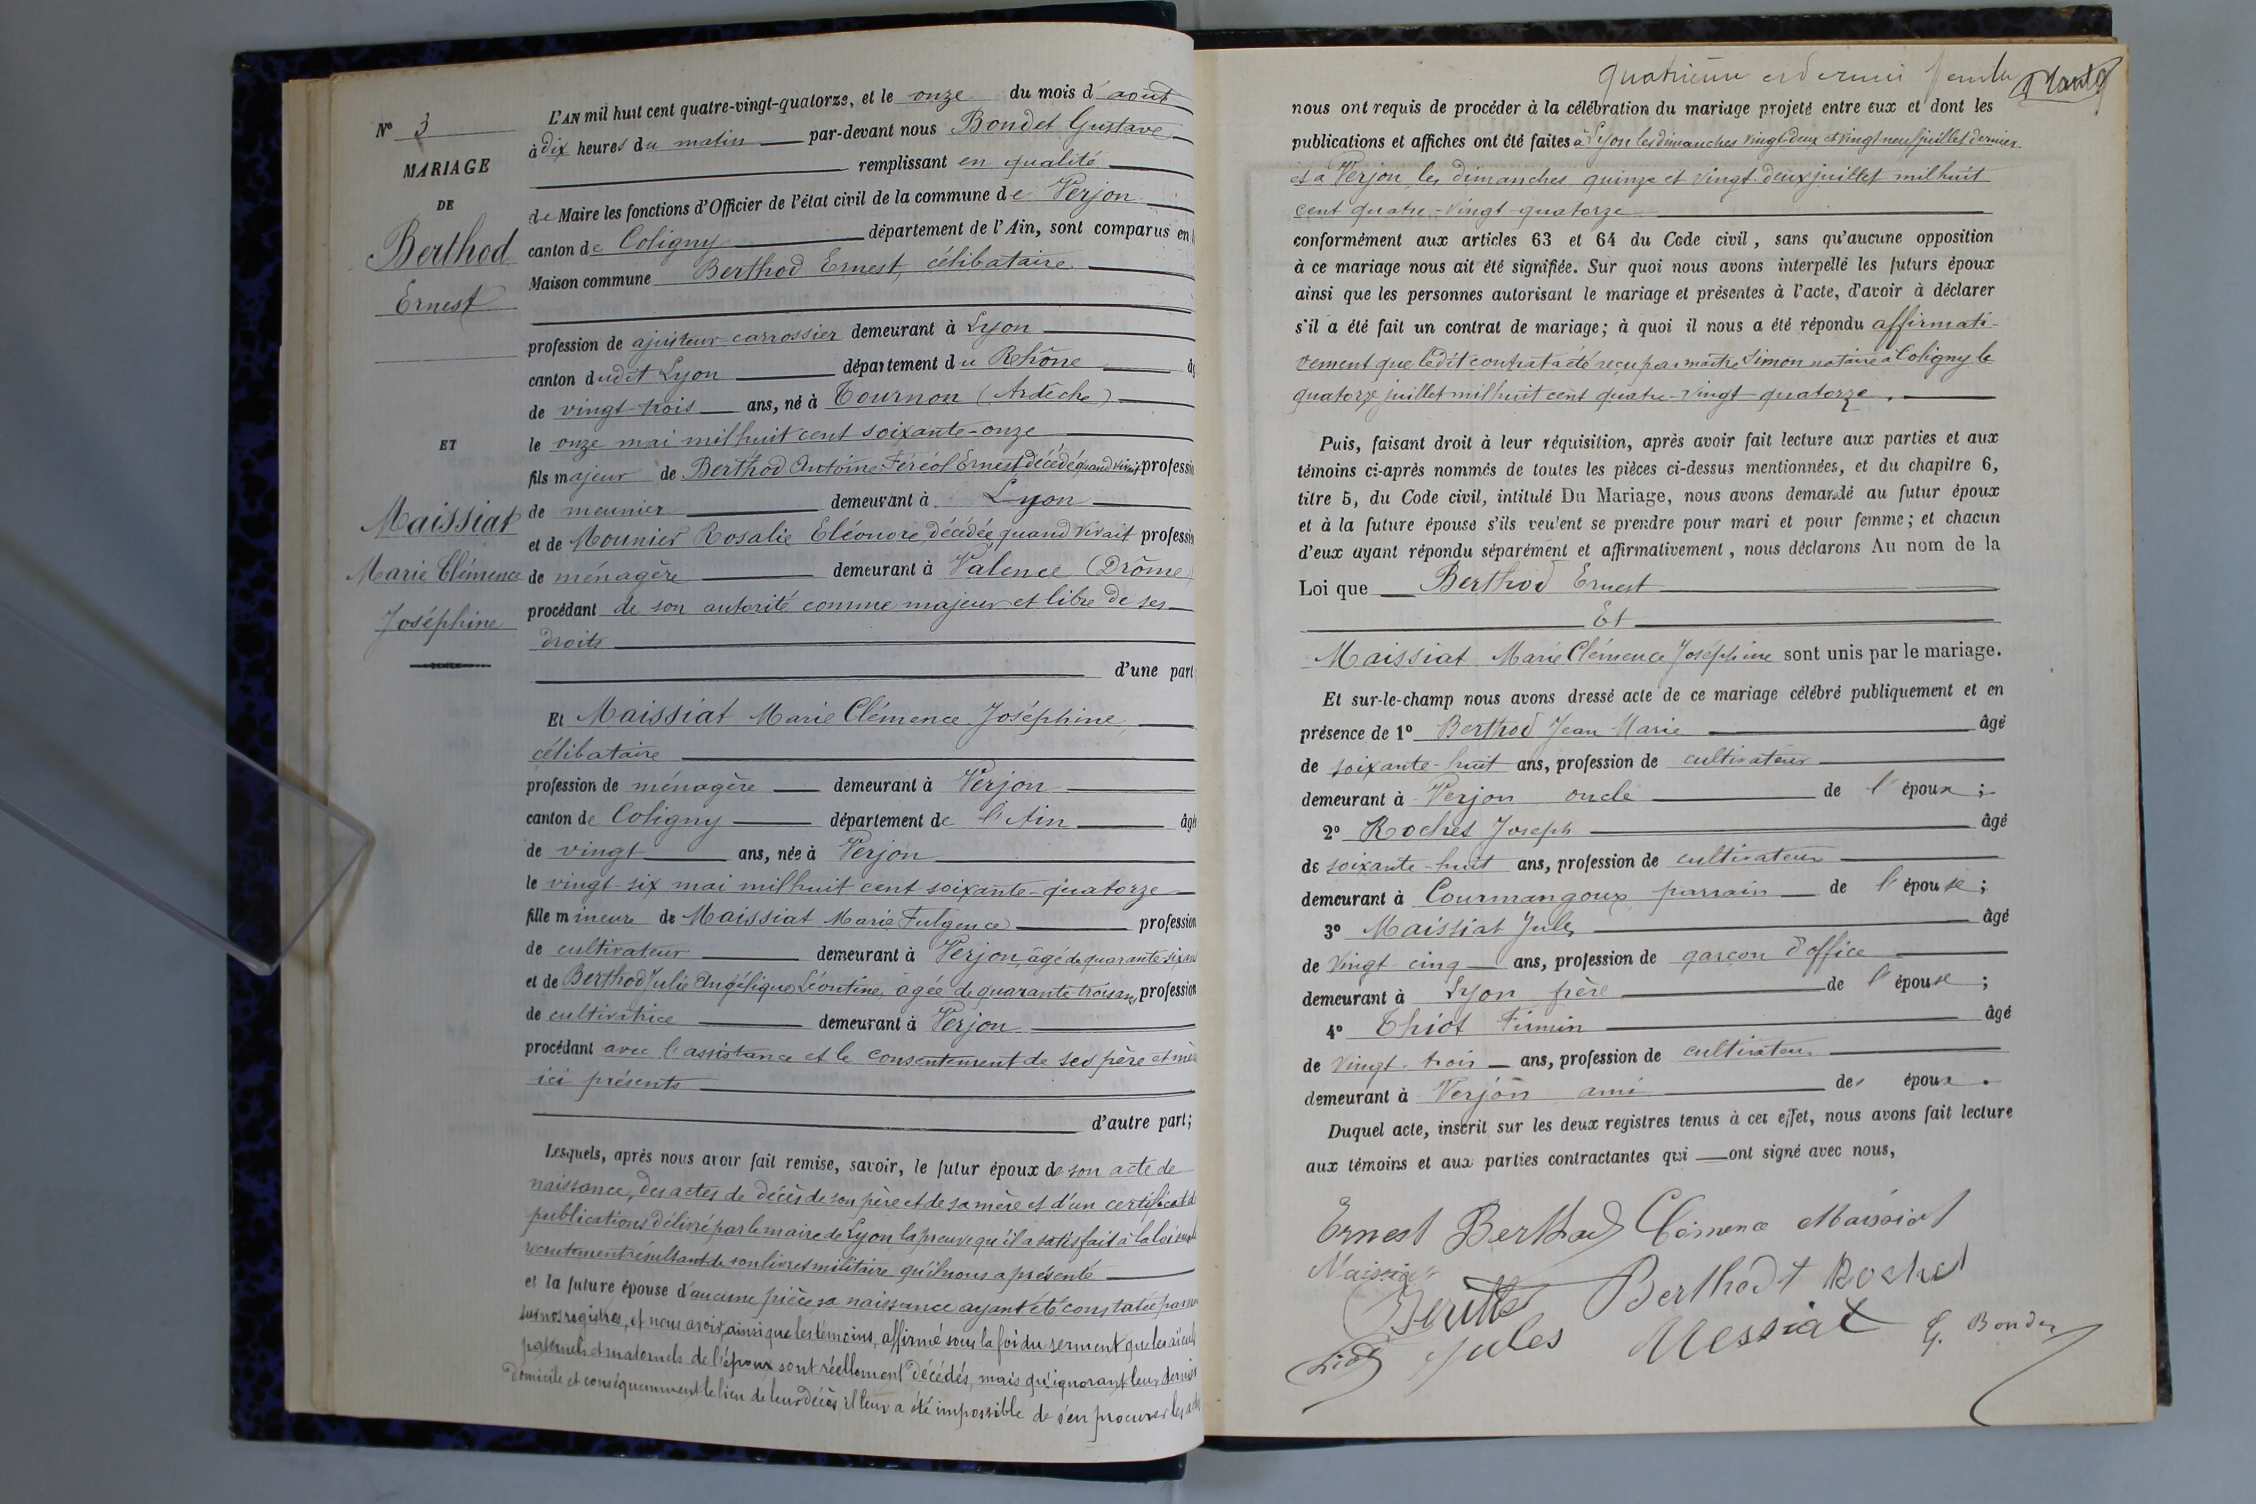 N° 3
MARIAGE
DE
Berthod
Ernest
ET
Maissiat
Marie Clémence
Joséphine
L'AN mil huit cent quatre-vingt-quatorze, et le onze du mois d'août
à dix heures du matin par-devant nous Bondet Gustave
remplissant en qualité
de Maire les fonctions d'Officier de l'état civil de la commune de Verjon
canton de Coligny département de l'Ain, sont comparus en
Maison commune Berthod Ernest, célibataire
profession de ajusteur-carrossier demeurant à Lyon
canton dudit Lyon département du Rhône
de vingt-trois ans, né à Tournon (Ardèche)
le onze mai mil huit cent soixante-onze
fils majeur de Berthod Antoine Féréol Ernest décédé quand vivait profession
de meunier demeurant à Lyon
et de Mounier Rosalie Eléonore décédée quand vivait profession
de ménagère demeurant à Valence (Drôme)
procédant de son autorité comme majeur et libre de ses
droits
d'une part
Et Maissiat Marie Clémence Joséphine,
célibataire
profession de ménagère demeurant à Verjon
canton de Coligny département de l'Ain âgée
de vingt ans, née à Verjon
le vingt-six mai mil huit cent soixante-quatorze
fille mineure de Maissiat Marie Fulgence profession
de cultivateur demeurant à Verjon, âgé de quarante-six ans
et de Berthod Julie Angélique Léontine, âgée de quarante-trois ans, profession
de cultivatrice demeurant à Verjon
procédant avec l'assistance et le consentement de ses père et mère
ici présents
d'autre part;
Lesquels, après nous avoir fait remise, savoir, le futur époux de son acte de
naissance, des actes de décès de son père et de sa mère et d'un certificat de
publications délivré par le maire de Lyon la preuve qu'il a satisfait à la loi sur le
recrutement résultant de son livret militaire qu'il nous a présenté
et la future épouse d'aucune pièce sa naissance ayant été constatée par nous
sur nos registres, et nous avoir, ainsi que les témoins, affirmé sous la foi du serment que les aïeuls
paternels et maternels de l'époux sont réellement décédés, mais qu'ignorant leur dernier
domicile et conséquemment le lieu de leur décès il leur a été impossible de s'en procurer les actes
quatrième et dernier
nous ont requis de procéder à la célébration du mariage projeté entre eux et dont les
publications et affiches ont été faites à Lyon les dimanches vingt-deux et vingt-neuf juillet dernier
et à Verjon les dimanches quinze et vingt-deux juillet mil huit
cent quatre-vingt-quatorze
conformément aux articles 63 et 64 du Code civil, sans qu'aucune opposition
à ce mariage nous ait été signifiée. Sur quoi nous avons interpellé les futurs époux
ainsi que les personnes autorisant le mariage et présentes à l'acte, d'avoir à déclarer
s'il a été fait un contrat de mariage; à quoi il nous a été répondu affirmati-
vement que ledit contrat a été reçu par maître Simon notaire à Coligny le
quatorze juillet mil huit cent quatre-vingt-quatorze.
Puis, faisant droit à leur réquisition, après avoir fait lecture aux parties et aux
témoins ci-après nommés de toutes les pièces ci-dessus mentionnées, et du chapitre 6,
titre 5, du Code civil, intitulé Du Mariage, nous avons demandé au futur époux
et à la future épouse s'ils veulent se prendre pour mari et pour femme; et chacun
d'eux ayant répondu séparément et affirmativement, nous déclarons Au nom de la
Loi que Berthod Ernest
Et
Maissiat Marie Clémence Joséphine sont unis par le mariage.
Et sur-le-champ nous avons dressé acte de ce mariage célébré publiquement et en
présence de 1° Berthod Jean Marie âgé
de soixante-huit ans, profession de cultivateur
demeurant à Verjon oncle de l'époux;
2° Rochet Joseph âgé
de soixante-huit ans, profession de cultivateur
demeurant à Courmangoux parrain de l'épouse;
3° Maissiat Jules âgé
de vingt-cinq ans, profession de garçon d'office
demeurant à Lyon frère de l'épouse;
4° Thiot Firmin âgé
de vingt-trois ans, profession de cultivateur
demeurant à Verjon ami des époux.
Duquel acte, inscrit sur les deux registres tenus à cet effet, nous avons fait lecture
aux témoins et aux parties contractantes qui ont signé avec nous,
Ernest Berthod Clémence Maissiat
Berthod t Rochet
Jules Messiat G. Bondet